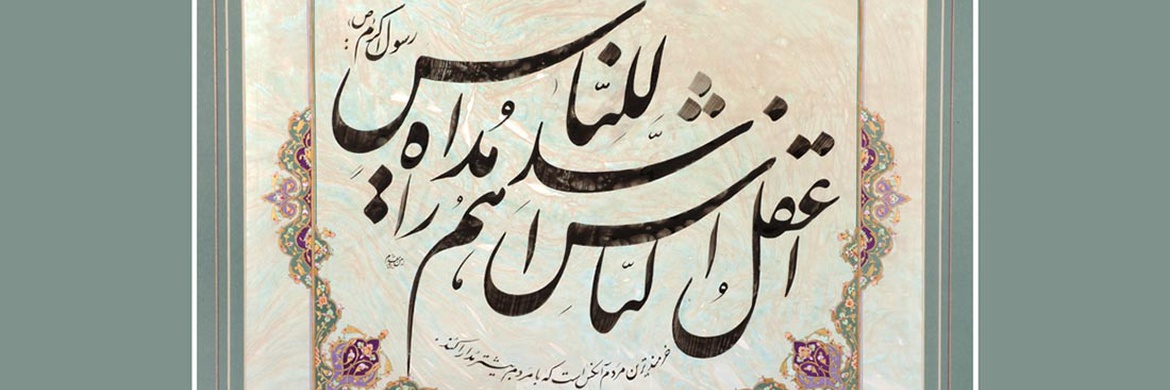 رسول اکرم ص
اعقلُ النّاسِ اَشَدّهُم مُداراةٍ لِلنّاسِ
خردمندترین مردم آنکس است که با مردم بیشتر مدارا کند.